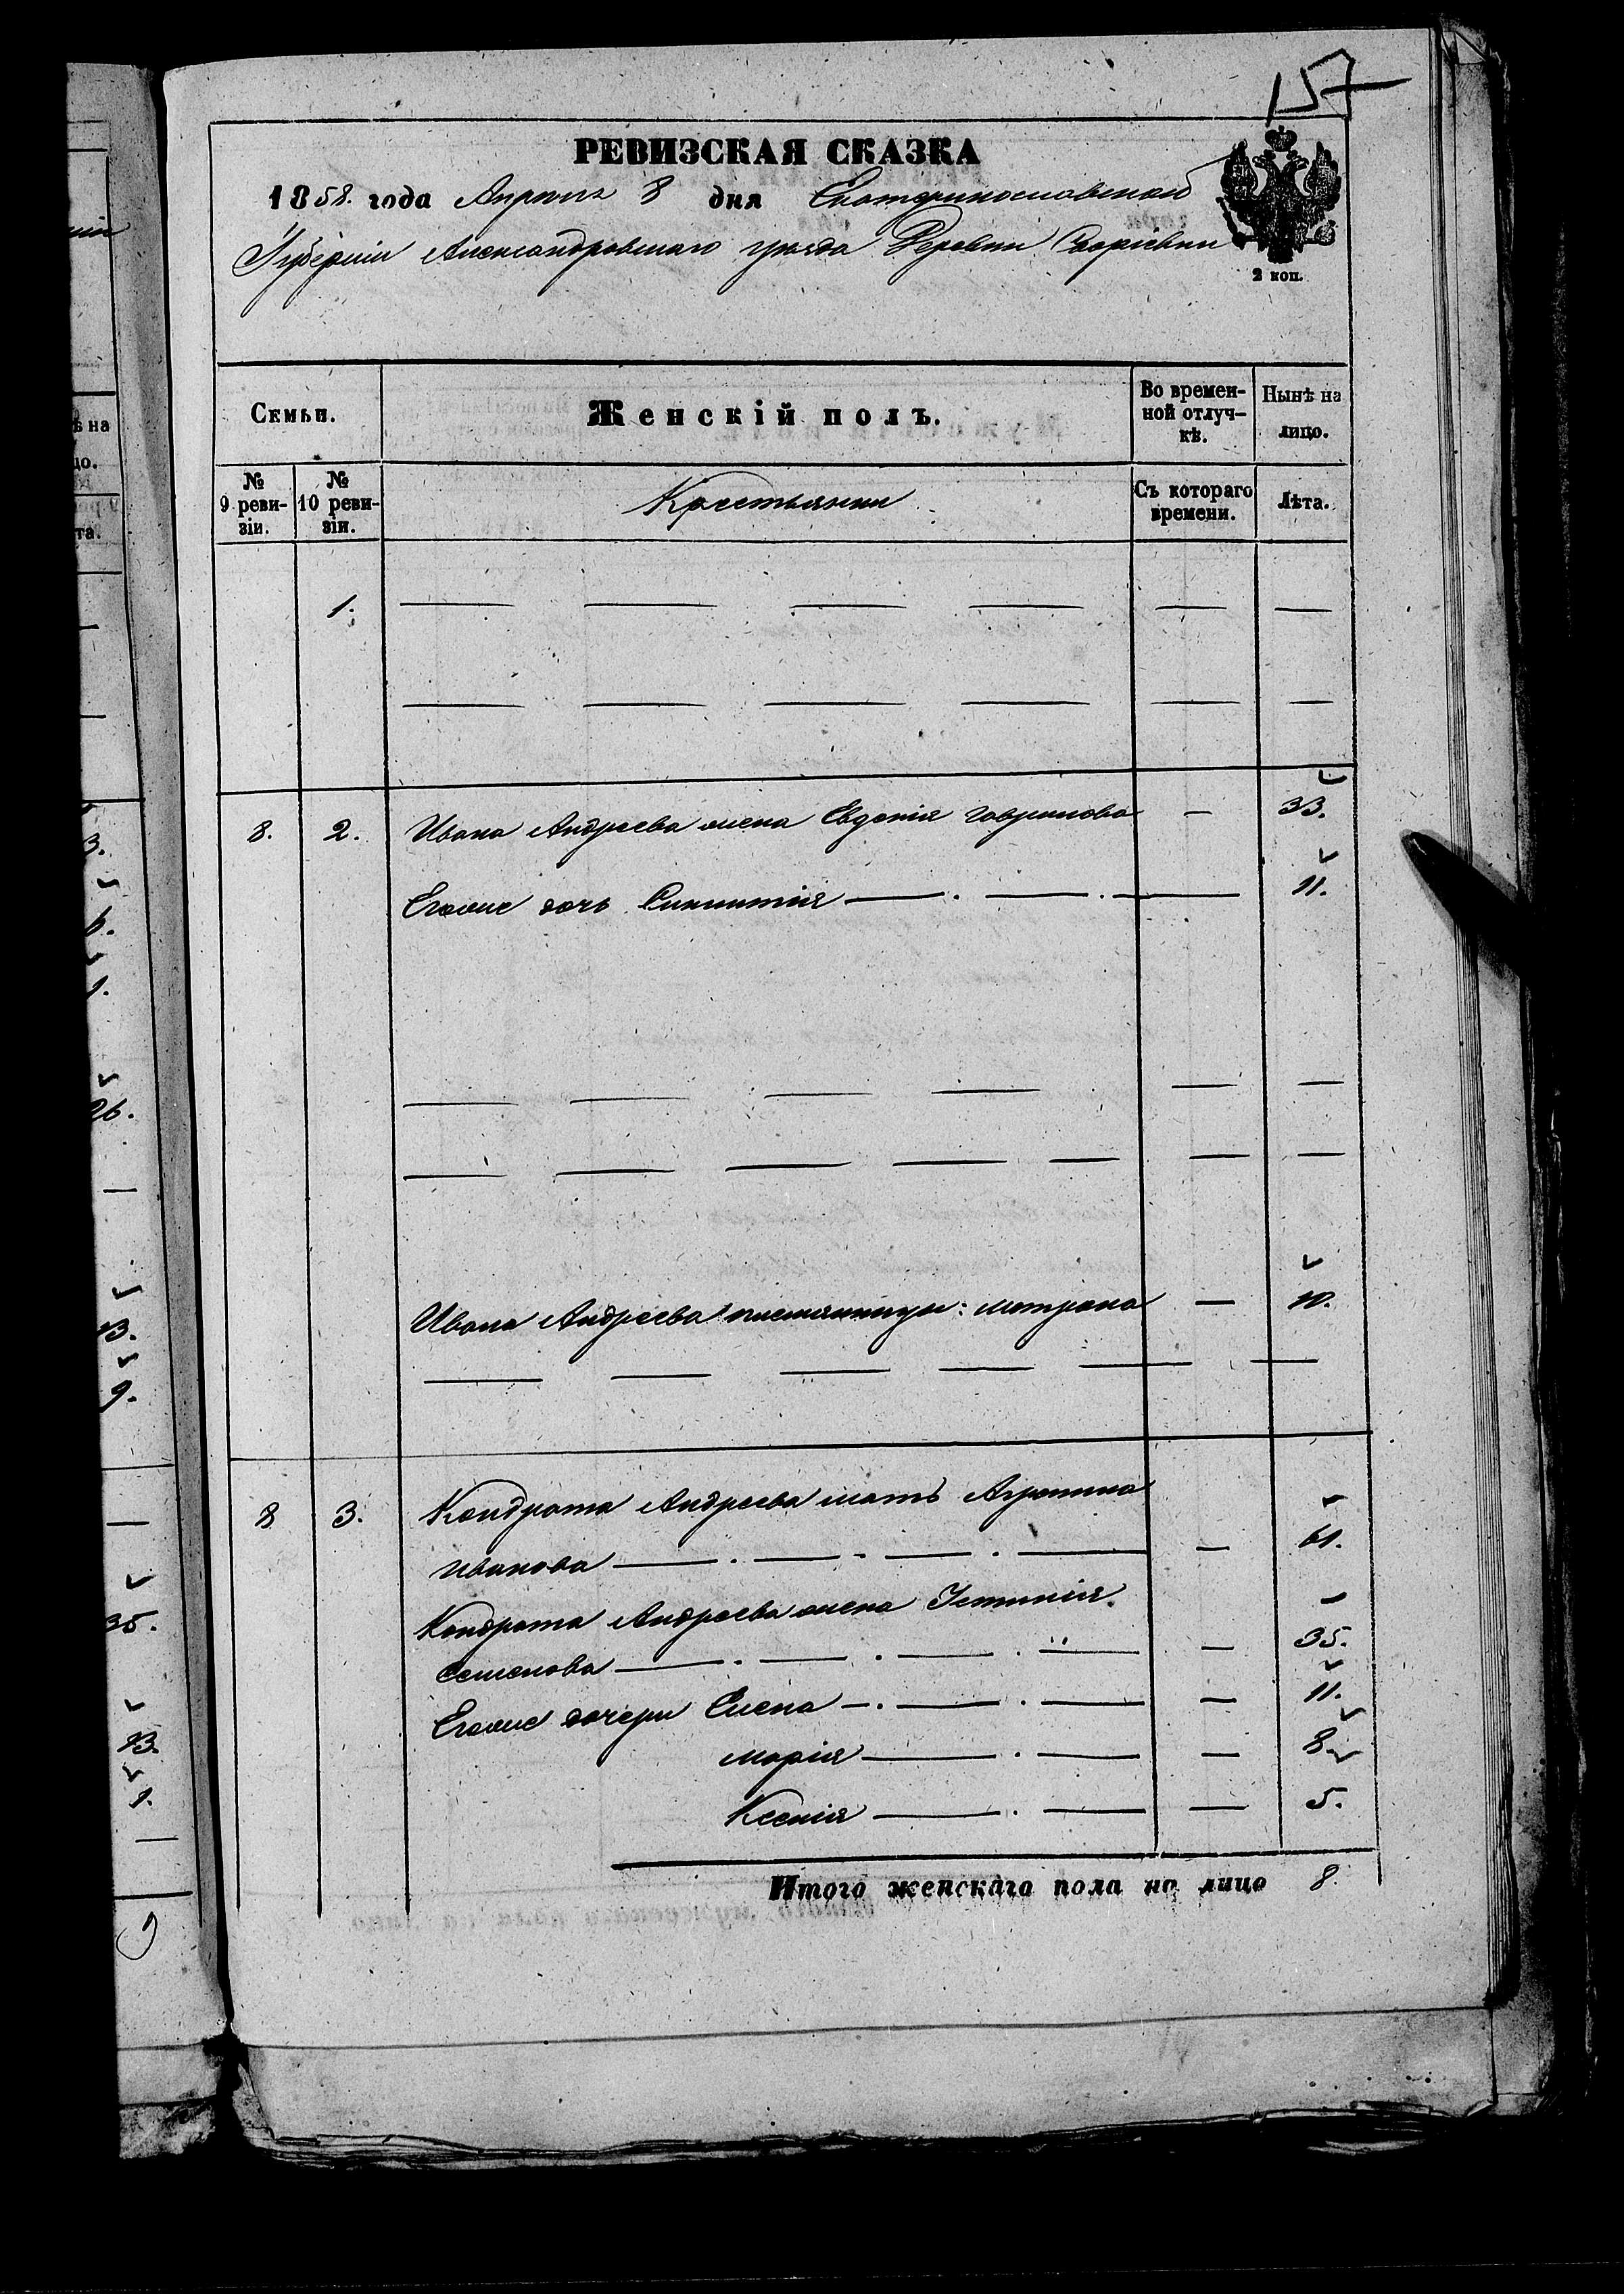 157
РЕВИЗСКАЯ СКАЗКА
1858. года Апреля 8 дня Екатеринославской
Губерніи Александровскаго уѣзда Деревни
2 коп.
Семьи.
Женскій полъ.
Во времен-
ной отлуч-
кѣ.
Нынѣ на
лицо.
№
9 реви-
зіи.
№
10 реви-
зіи.
Крестьянки
Съ котораго
времени.
Лѣта.
1.
8. 2. Ивана Андреева жена Евдокія Гаврилова — 33.
Егоже дочь Синклитія — 11.
Ивана Андреева племянницы: Матрона — 10.
8 3. Кондрата Андреева мать Агрипина
Иванова — 61.
Кондрата Андреева жена Устинія
Семенова — 35.
Егоже дочери Елена — 11.
Марія — 8
Ксенія — 5.
Итого женскаго пола на лицо 8.
ѣ на
цо.
та.
3.
6.
1.
26.
13.
9.
35.
13.
1.
9